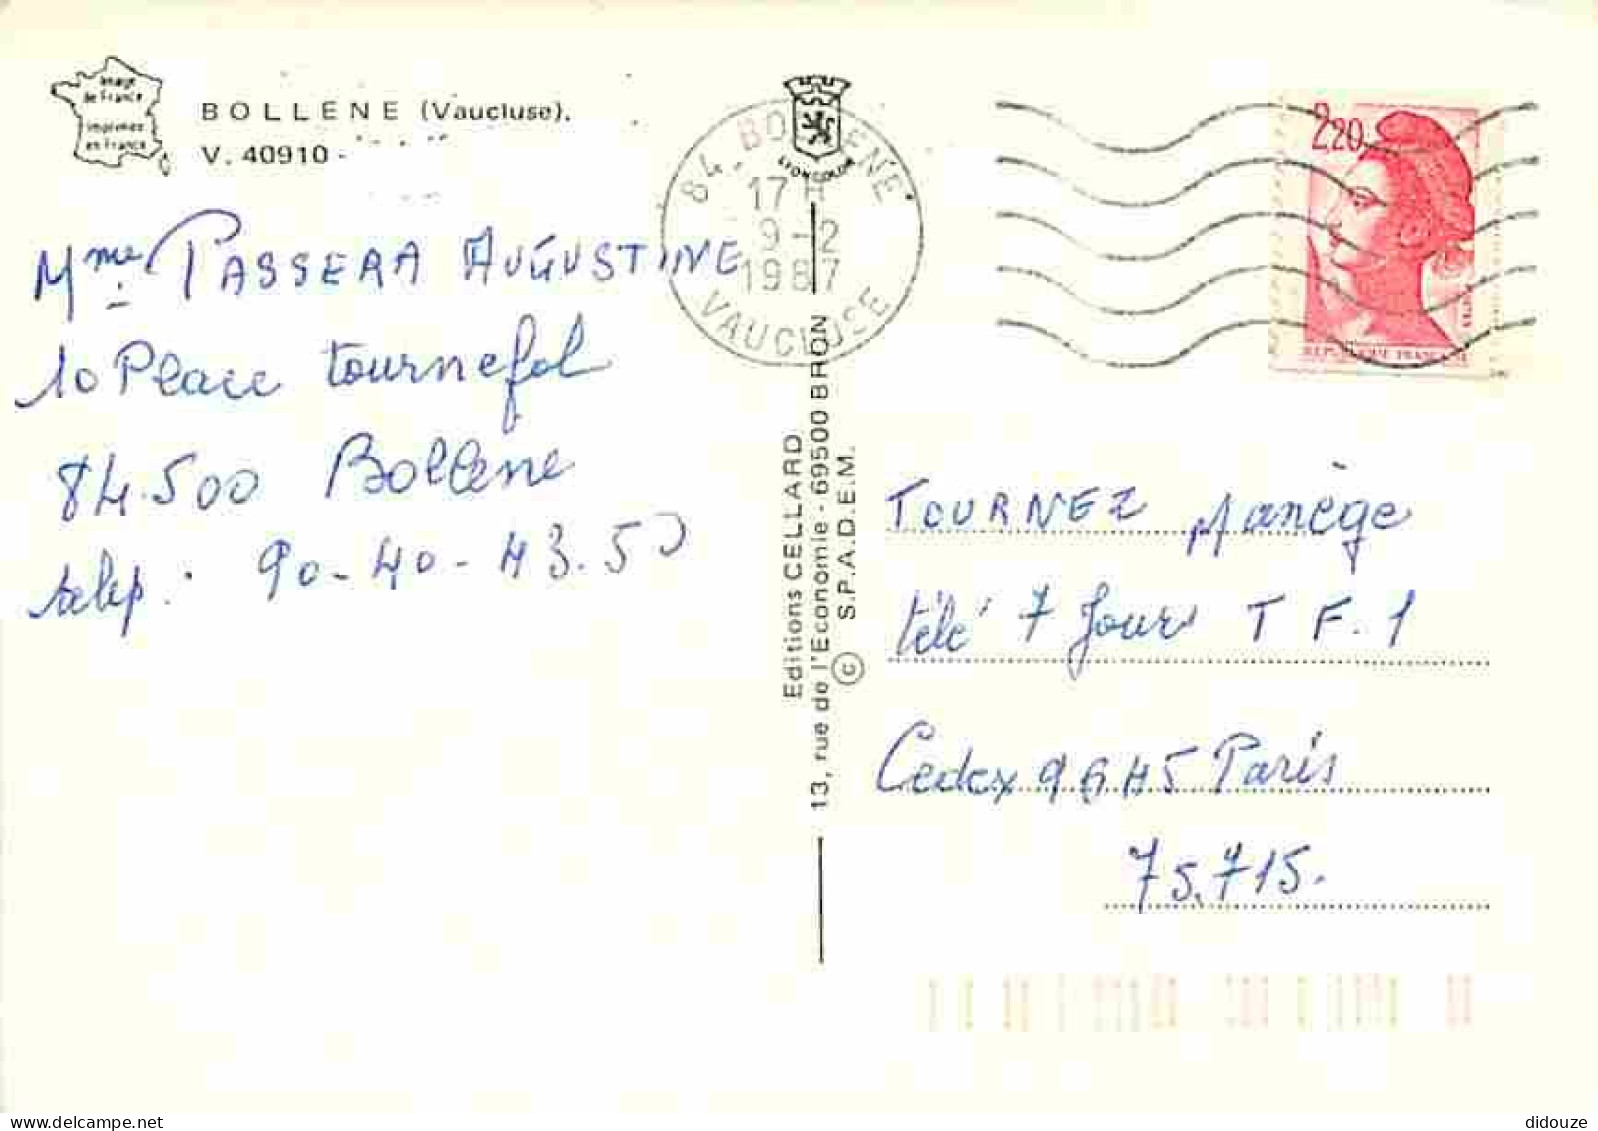 Image
de France
Imprimée
en France
BOLLENE (Vaucluse).
V. 40910 -
Mme PASSERA AUGUSTINE
10 Place tournefol
84.500 Bollene
telep: 90-40-43.50
84 - BOLLENE
17 H
9-12
1987
VAUCLUSE
LYONCOLOR
2,20
REPUBLIQUE FRANÇAISE
Editions CELLARD
13, rue de l'Economie - 69500 BRON
© S.P.A.D.E.M.
TOURNEZ Manège
télé 7 Jour T F. 1
Cedex 9645 Paris
75.715.
didouze